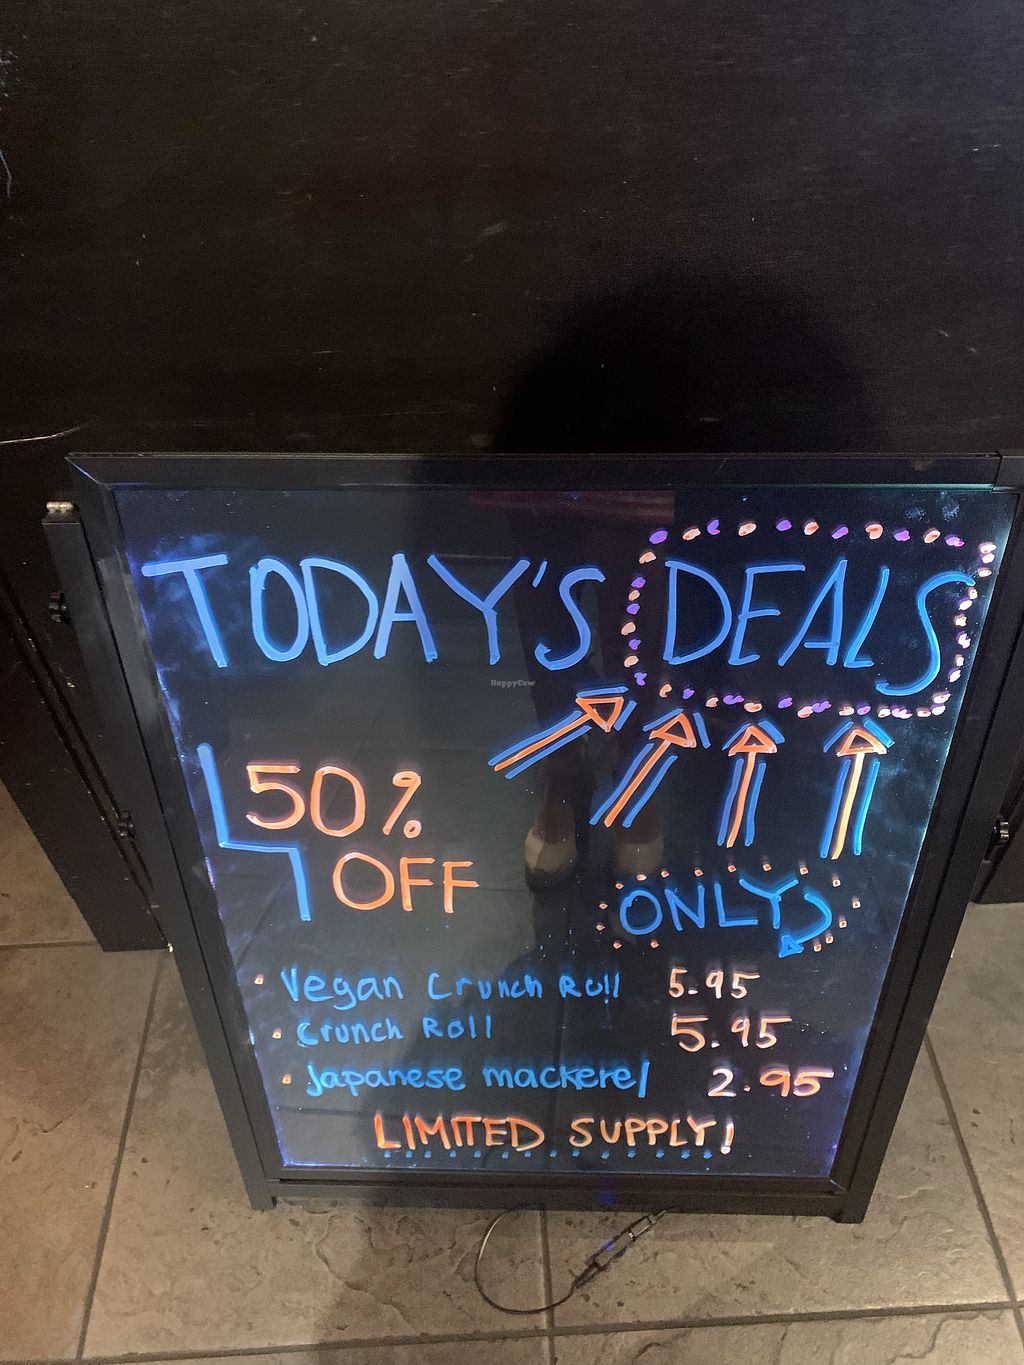 TODAY'S DEALS
HappyCow
50% 
OFF
ONLY
• Vegan Crunch Roll 5.95
• Crunch Roll 5.95
• Japanese mackerel 2.95
LIMITED SUPPLY!